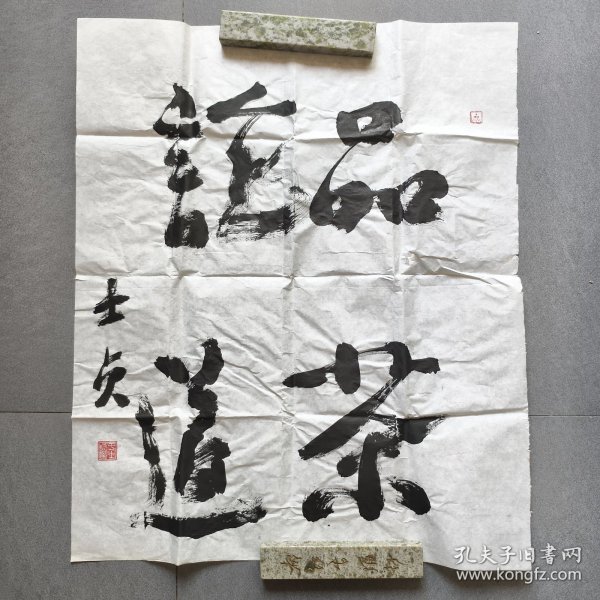 品茶
論道
士贞
孔夫子旧书网
www.kongfz.com